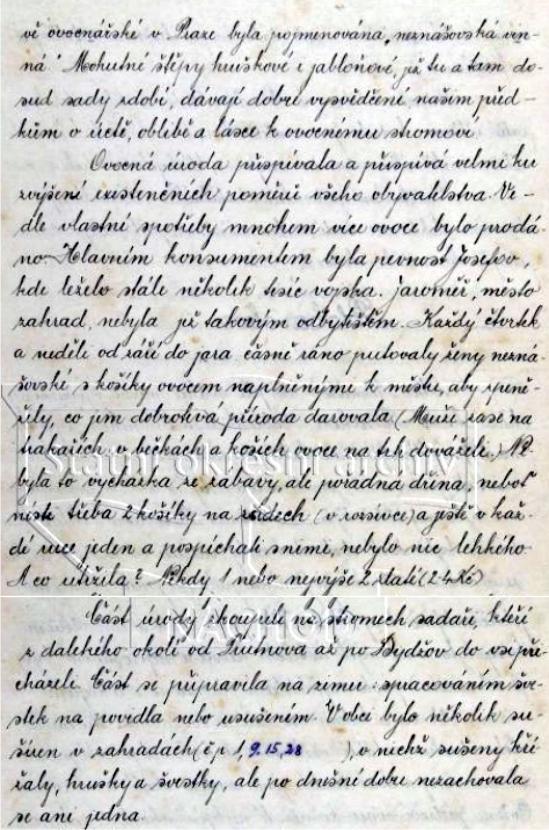 vě ovocnářské v Praze byla pojmenována „neznášovská vin-
ná". Mohutné štěpy hruškové i jabloňové, jež tu a tam do-
sud sady zdobí, dávají dobré vysvědčení našim před-
kům o úctě, oblibě a lásce k ovocnému stromoví.
Ovocná úroda přispívala a přispívá velmi ku
zvýšení existenčních poměrů všeho obyvatelstva. Ve-
dle vlastní spotřeby mnohem více ovoce bylo prodá-
no. Hlavním konsumentem byla pevnost Josefov,
kde leželo stále několik tisíc vojska. Jaroměř, město
zahrad, nebyla již takovým odbytištěm. Každý čtvrtek
a neděli od září do jara časně ráno putovaly ženy nezná-
šovské s košíky ovocem naplněnými k městu, aby zpeně-
žily, co jim dobrotivá příroda darovala. (Muži zase na
trakařích v bečkách a koších ovoce na trh dováželi.) Ne-
byla to vycházka ze zábavy, ale pořádná dřina, neboť
nésti třeba 2 košíky na zádech (v rozsívce) a ještě v kaž-
dé ruce jeden a pospíchati s nimi, nebylo nic lehkého.
A co utržila? Někdy 1 nebo nejvýše 2 zlaté (2-4 Kč)
Část úrody zkoupili na stromech sadaři, kteří
z dalekého okolí od Trutnova až po Bydžov do vsi při-
cházeli. Část se připravila na zimu spracováním šve-
stek na povidla nebo usušením. V obci bylo několik su-
šíren v zahradách (čp 1, 9, 15, 28 ), v nichž sušeny kří-
žaly, hrušky a švestky, ale po dnešní dobu nezachovala
se ani jedna.
Státní okresní archiv
NÁCHOD